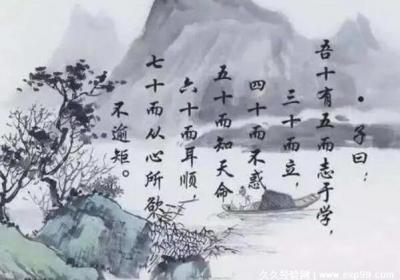 ·子曰：
吾十有五而志于学，
三十而立，
四十而不惑
五十而知天命
六十而耳顺
七十而从心所欲
不逾矩。
久久经验网 | www.exp99.com